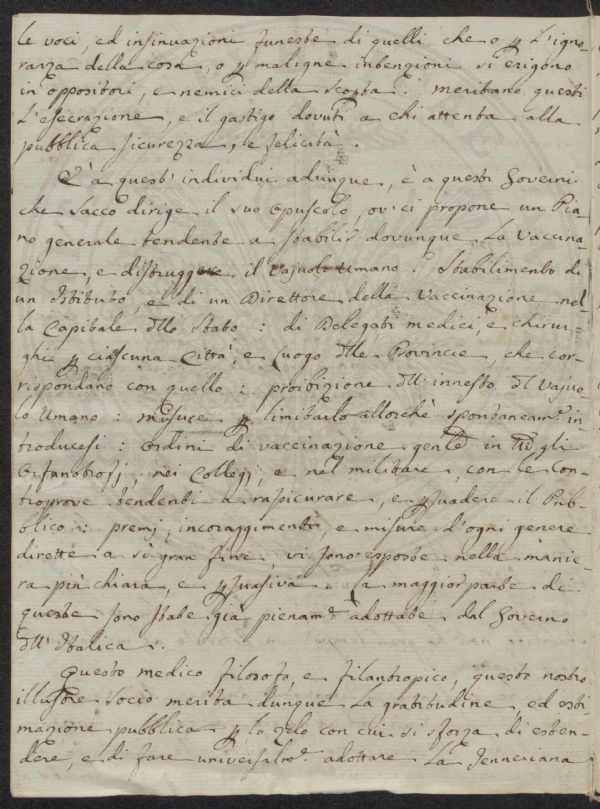 le voci, ed insinuazioni funeste di quelli che o p l'igno-
ranza della cosa, o p maligne intenzioni si erigono
in oppositori, e nemici della scoperta. meritano questi
l'esecrazione, e il gastigo dovuti a chi attenta alla
pubblica sicurezza, e felicità.
È a questi individui adunque, è a questi Governi
che Sacco dirige il suo Opuscolo, ov'ei propone un Pia-
no generale tendente a stabilir dovunque la Vaccina-
zione, e distruggere il vajuolo Umano. Stabilimento di
un Istituto, e di un Direttore della Vaccinazione nel-
la Capitale dllo Stato: di Delegati medici, e chirur-
ghi p ciascuna Città, e luogo dlle Provincie, che cor-
rispondano con quello: proibizione dll'innesto dl Vajuo-
lo Umano: misure p limitarlo allorchè spontaneamte in-
troducesi: Ordini di vaccinazione genle in tti gli
Orfanotrofj, nei Collegj, e nel militare, con le con-
troprove tendenti a rassicurare, e psuadere il Pub-
blico: premj, incoraggimenti, e misure d'ogni genere
dirette a sì gran fine, vi sono esposte nella manie-
ra più chiara, e psuasiva. la maggior parte di
queste sono state già pienamte adottate dal Governo
dll'Italica.
Questo medico filosofo, e filantropico, questo nostro
illustre socio merita dunque la gratitudine, ed esti-
mazione pubblica p lo zelo con cui si sforza di esten-
dere, e di fare universalmte adottare la Jenneriana